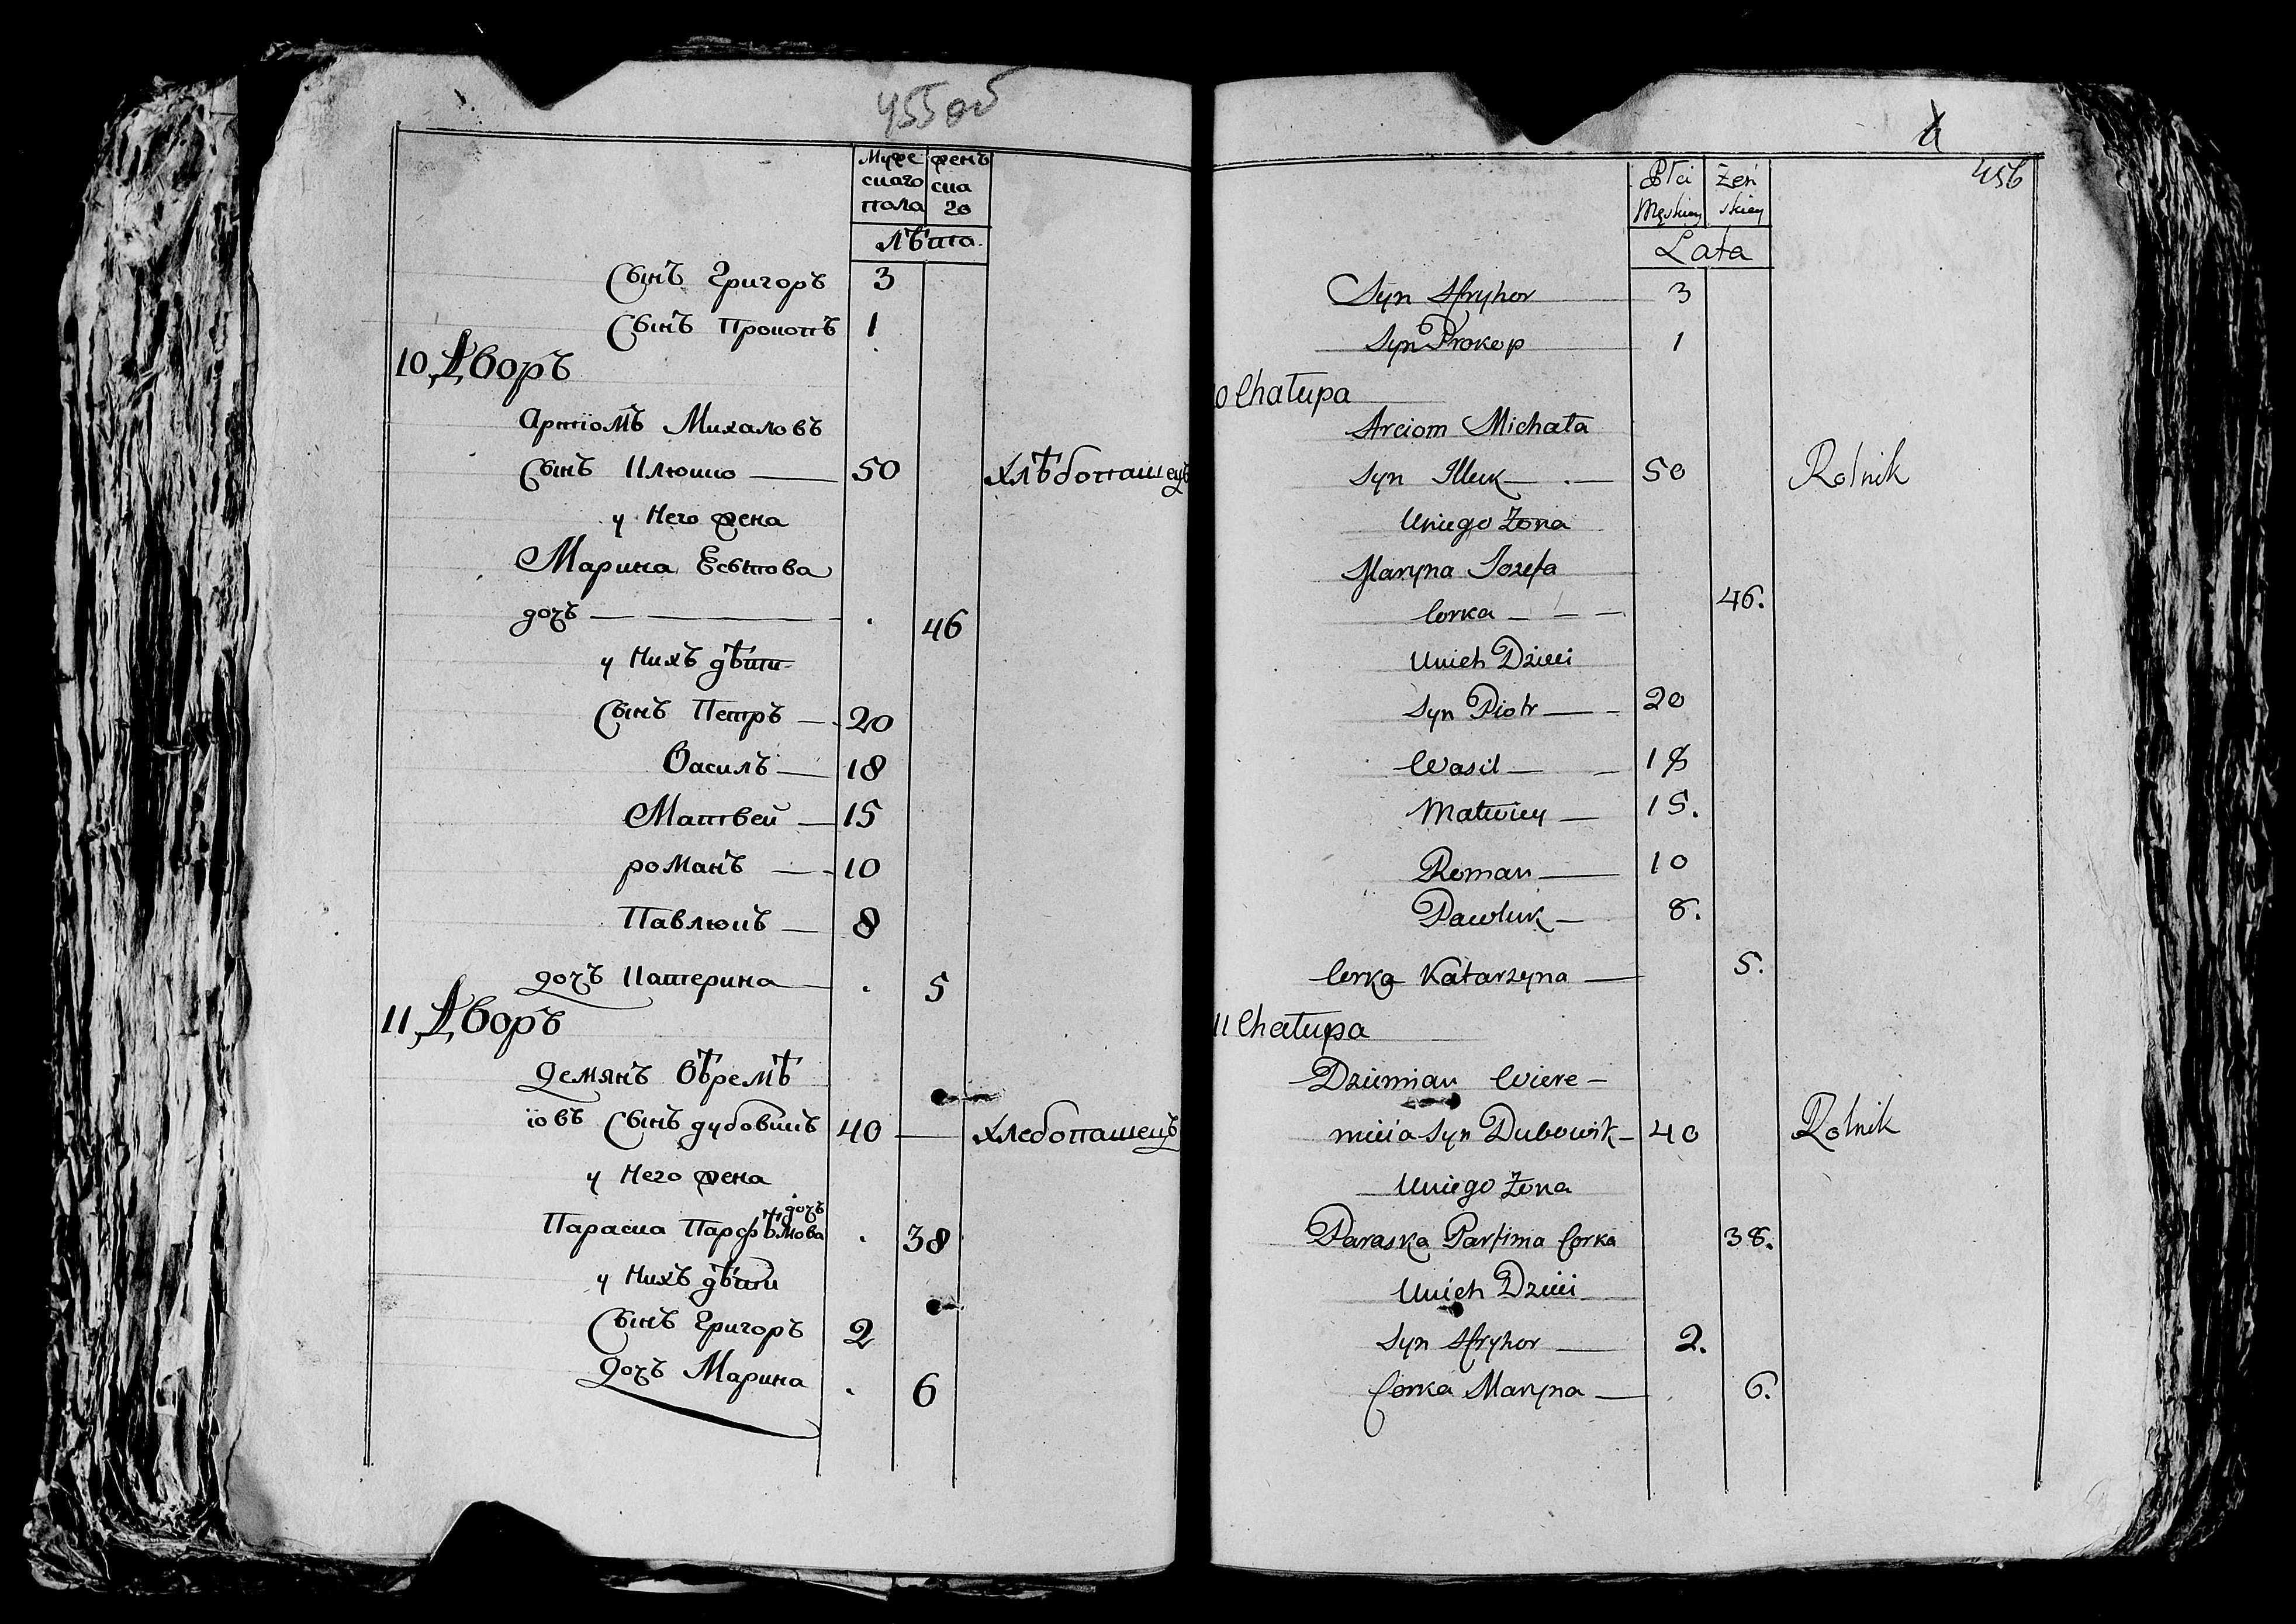 455об
Муже
скаго
пола
жень
ска
го
лѣта.
Сынъ Григоръ 3
Сынъ Прокопъ 1
10 Дворъ
Артіомъ Михаловъ
Сынъ Илюшко — 50 хлѣбопашецъ
у Него жена
Марина Есѣпова
дочъ — 46
у Нихъ дѣти
Сынъ Петръ — 20
Василъ — 18
Матвей — 15
романъ — 10
Павлюкъ — 8
дочъ Катерина 5
11 Дворъ
Демянъ Вѣремѣ
іовъ Сынъ дубовикъ 40 — хлебопашецъ
у Него жена
дочъ
Параска Парфѣмова 38
у Нихъ дѣти
Сынъ Григоръ 2
дочъ Марина 6
456
Płci
Męskiey
Żeń
skiey
Lata
Syn Hryhor 3
Syn Prokop 1
10 Chałupa
Arciom Michała
Syn Illuk — 50 Rolnik
Uniego Żona
Maryna Jozefa
Corka — — 46.
Unich Dzieci
Syn Piotr — 20
Wasil — 18
Matwiey — 15.
Roman — 10
Pawluk — 8.
Corka Katarzyna — 5.
11 Chałupa
Dziemian Wiere-
mieia Syn Dubowik — 40 Rolnik
Uniego Żona
Paraska Parfima Corka 38.
Unich Dzieci
Syn Hryhor — 2.
Corka Maryna — 6.